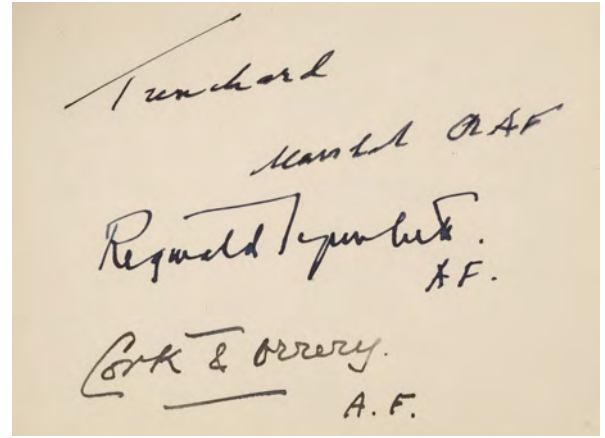 Trenchard
Marshal RAF
Reginald Tyrwhitt.
A.F.
Cork & Orrery.
A.F.